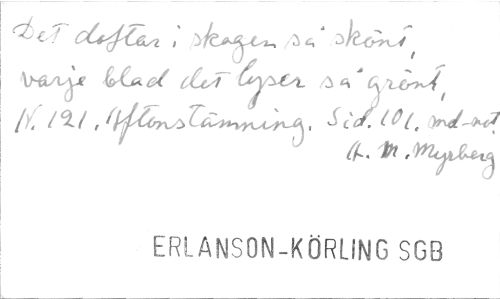 Det doftar i skogen så skönt,
varje blad det lyser så grönt,
N. 121. Aftonstämning. Sid. 101. md-not.
A. M. Myrberg
ERLANSON-KÖRLING SGB